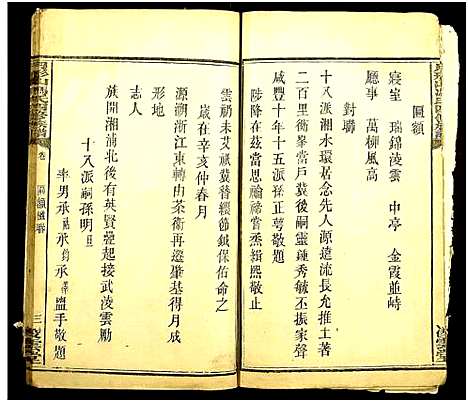 匾額
寢室　瑞錦凌雲　中亭　金霞並峙
廳事　萬柳風高
對聯
十八派湘水環居念先人源遠流長允推土著
二百里衡峯開戶冀後嗣靈鍾秀毓丕振家聲
咸豐十年十五派孫正蕚敬題
陟降在茲當思諭諦嘗烝緝熙敬止
雲礽未艾願冀晉經節鉞保佑命之
歲在辛亥仲春月
源溯浙江東轉由茶衡再遷肇基得月成
形地
志人
族開湘浦北後有英賢蹙起接武淩雲勵
十八派嗣孫明
率男承 承 承 盥手敬題
卷
匾額對聯
三